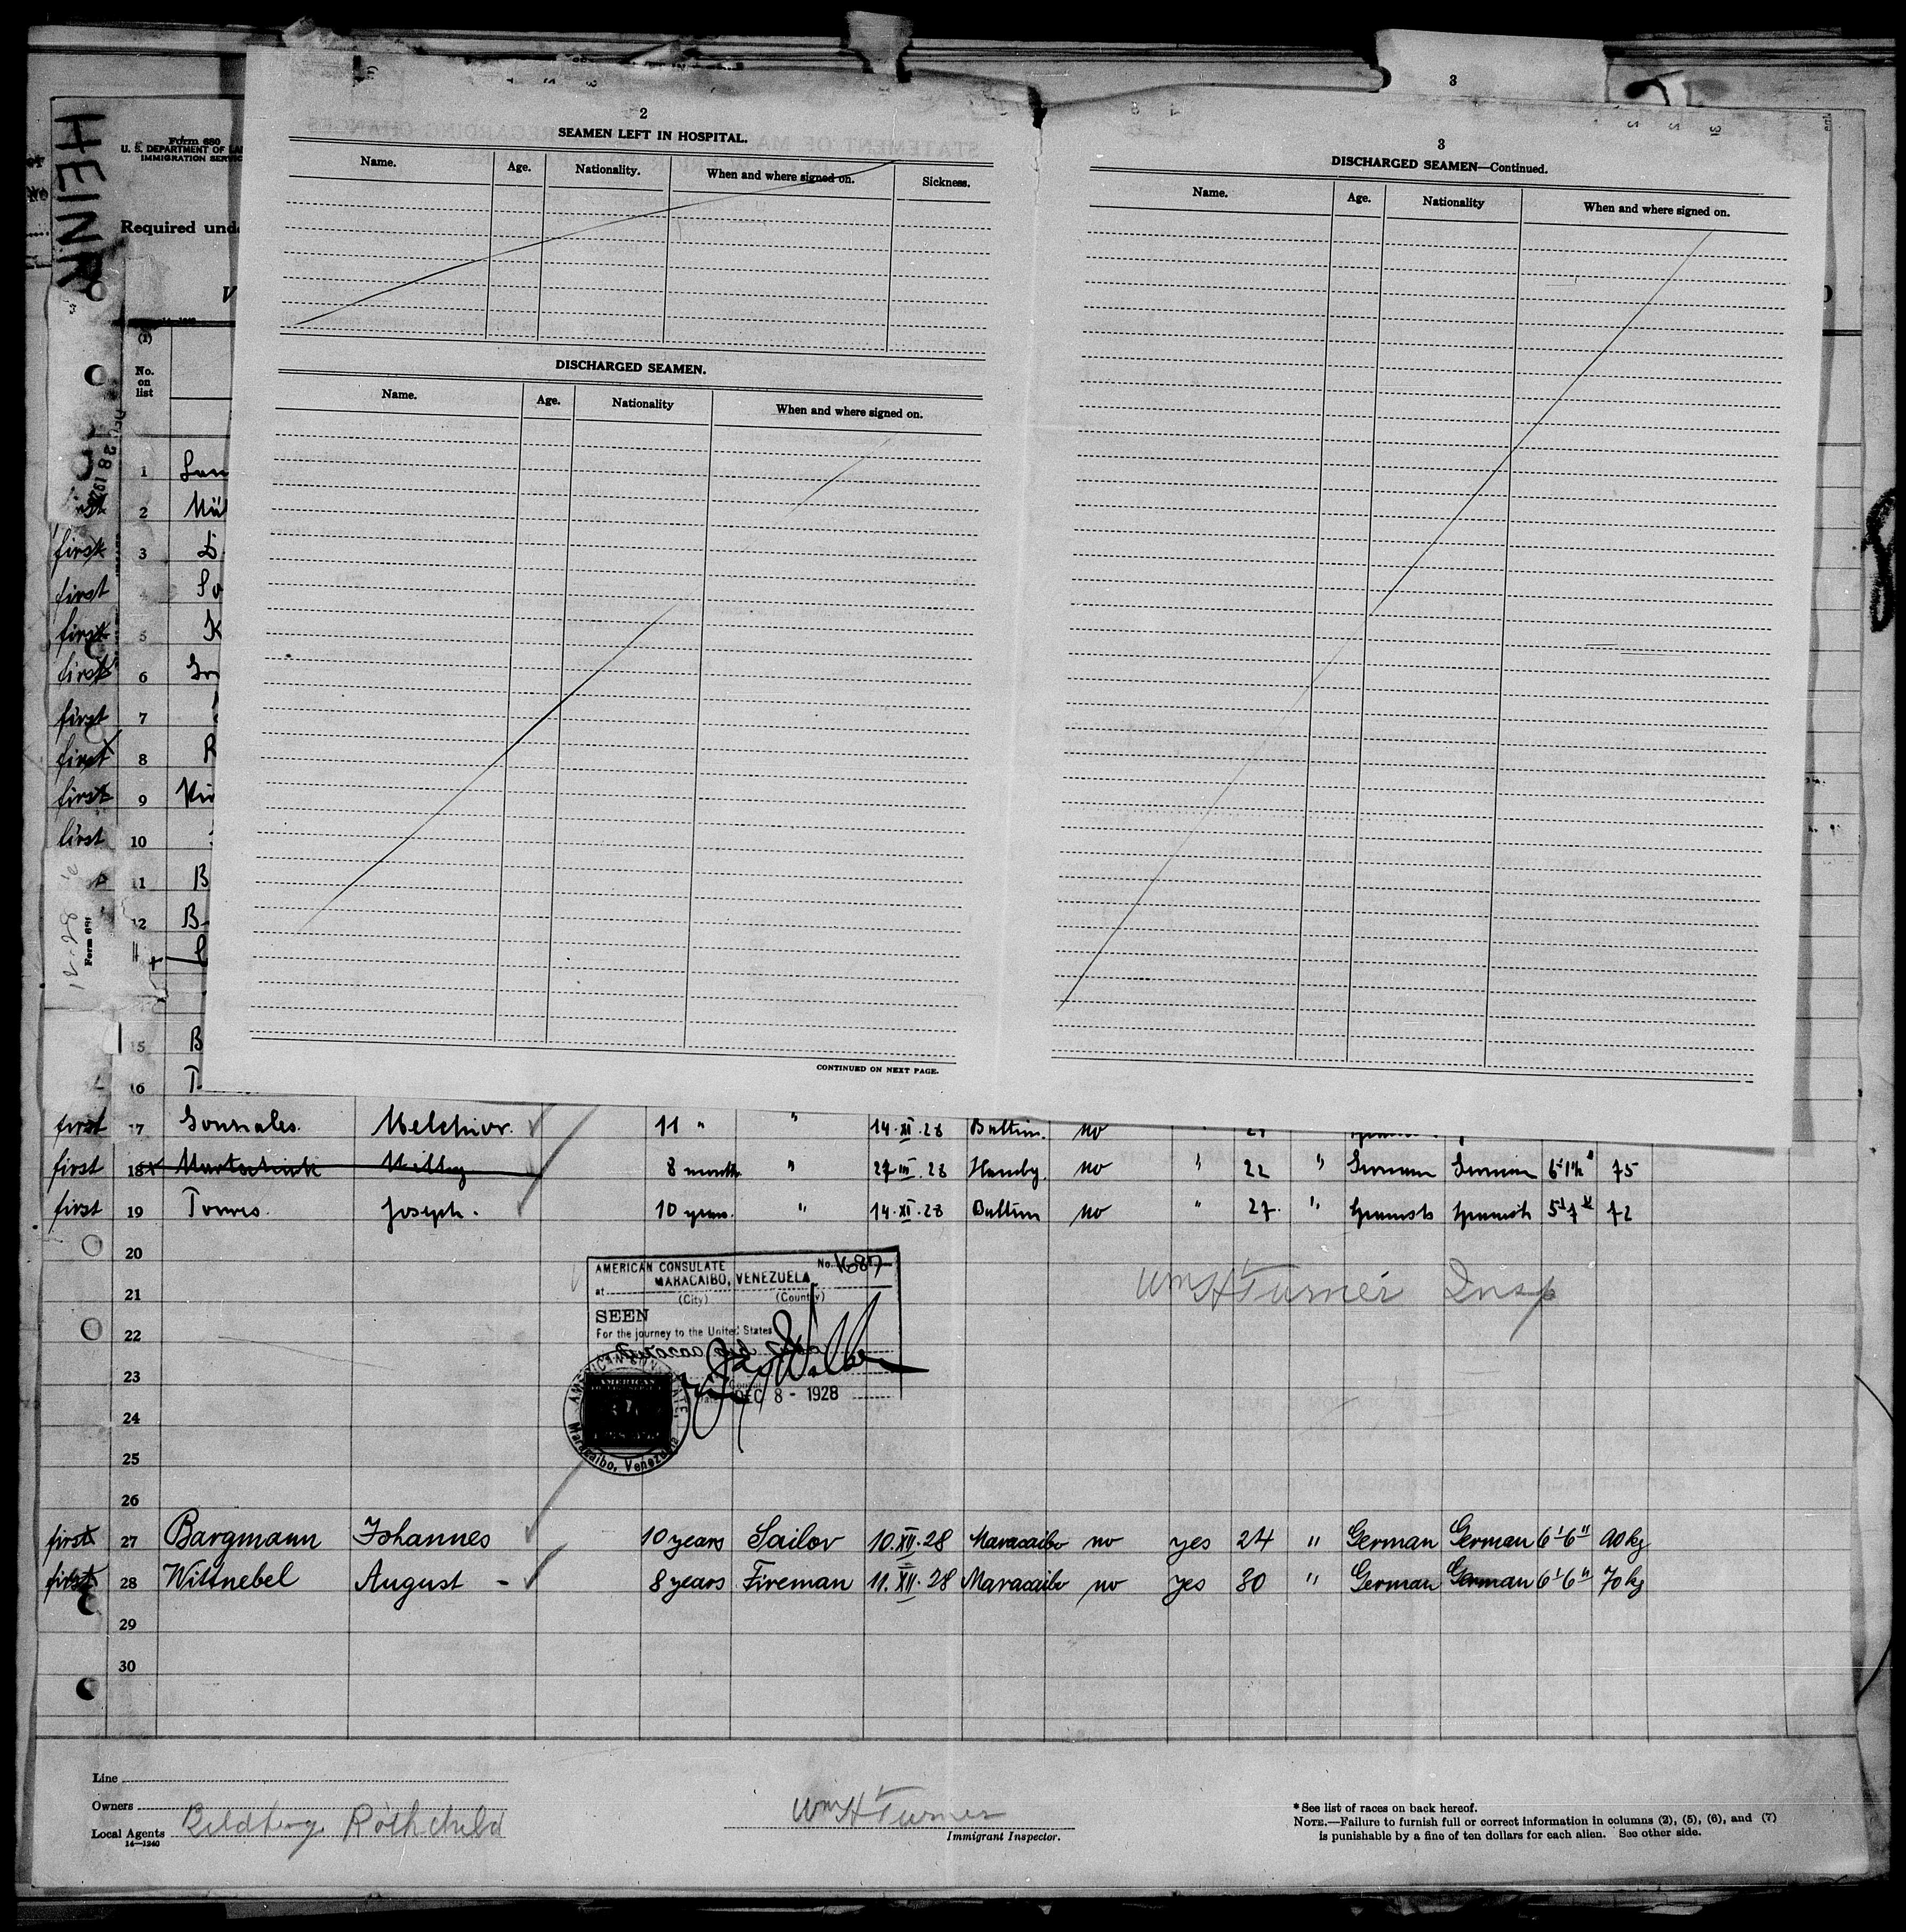 HEINR
Form 680
U. S. DEPARTMENT OF
IMMIGRATION SERVICE
Required
(1)
No.
on
list
DEC 28 192
2
SEAMEN LEFT IN HOSPITAL.
Name. Age. Nationality. When and where signed on. Sickness.
DISCHARGED SEAMEN.
Name. Age. Nationality When and where signed on.
CONTINUED ON NEXT PAGE.
3
3
DISCHARGED SEAMEN—Continued.
Name. Age. Nationality When and where signed on.
1
2
first 3
first
first 5
first 6
first 7
first 8
first 9
first 10
11 B
12 B
Form 691
15 B
16 T
first 17 Gonzales. Melchior. 11 " " 14.XI.28 Baltim. no
first 18 8 month " 27 III.28 Hambg. no " 22 " German German 6'1½" 75
first 19 Torres. Joseph. 10 years. " 14.XI.28 Baltim no " 27. " Spanish Spanish 5'7" 72
20
21
22
23
24
25
26
AMERICAN CONSULATE No. 1687
at MARACAIBO, VENEZUELA
(City) (Country)
SEEN
For the journey to the United States
Consul
Date DEC 8 - 1928
AMERICAN CONSULATE
Maracaibo, Venezuela
WmH Turner Insp
first 27 Bargmann Johannes 10 years Sailor 10.XII.28 Maracaibo no yes 24 " German German 6'6" 90 kg
first 28 Wittnebel August - 8 years Fireman 11.XII.28 Maracaibo no yes 30 " German German 6'6" 70 kg
29
30
Line
Owners
Local Agents Rothchild
14—1240
WmH Turner
Immigrant Inspector.
*See list of races on back hereof.
NOTE.—Failure to furnish full or correct information in columns (2), (5), (6), and (7)
is punishable by a fine of ten dollars for each alien. See other side.